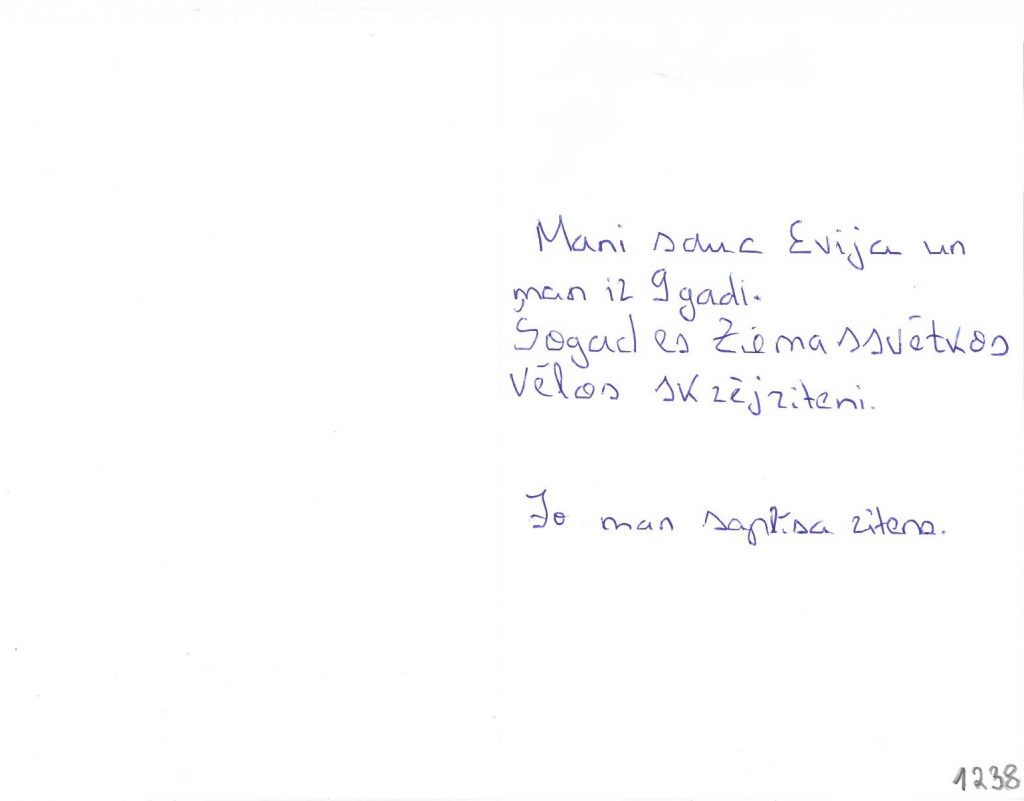 Mani sauc Evija un
man ir 9 gadi.
Sogad es Ziemassvētkos
Vēlos skrējriteni.
Jo man saplīsa ritens.
1238